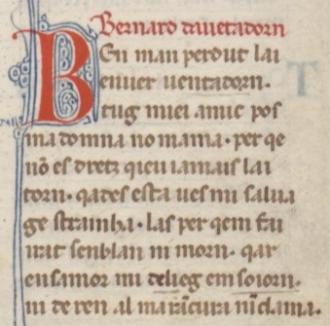 Bernard dauetadorn
Ben man perdut lai
enuer uentadorn.
tug miei amic pos
ma domna no mama. per qe
nō es dretz qieu iamais lai
torn. qades esta ues mi salua
ge strainha. las per qem fai
irat senblan ni morn. qar
en samor mi deleg em soiorn.
ni de ren al ma rācura ni clama.